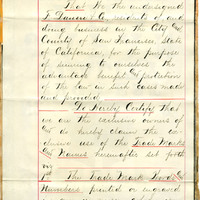 That We the undersigned
F. Danieri & Co residents of and
doing business in the City and
County of San Francisco, State
of California, for the purpose
of securing to ourselves the
advantage benefit and protection
of the law in such cases made
and provided
Do Hereby Certify That
we are the exclusive owners of
and do hereby claim the ex-
clusive use of the Trade Marks
and Names hereinafter set forth
viz
1st The Trade Mark Words and
Numbers printed or engraved